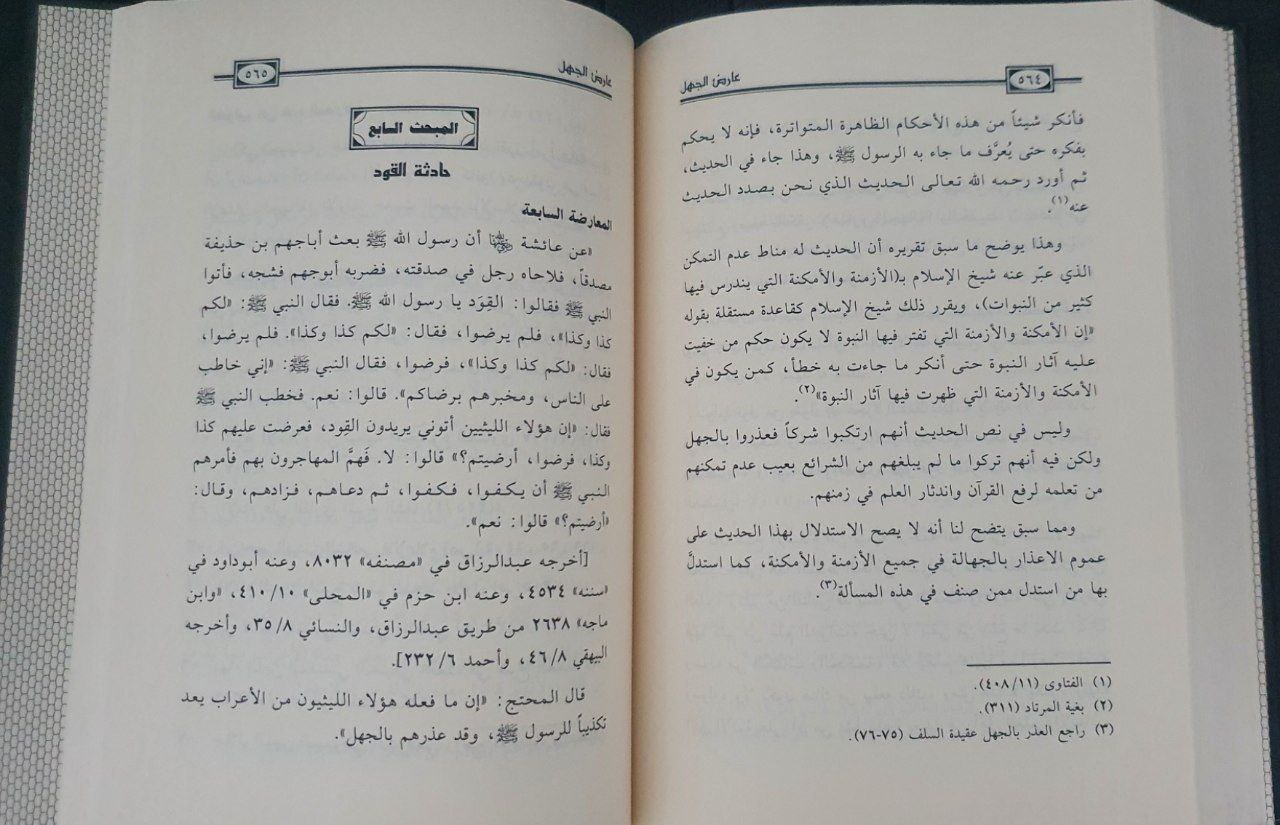 ٥٦٤
عارض الجهل
فأنكر شيئاً من هذه الأحكام الظاهرة المتواترة، فإنه لا يحكم
بفكره حتى يُعرَّف ما جاء به الرسول ﷺ، وهذا جاء في الحديث،
ثم أورد رحمه الله تعالى الحديث الذي نحن بصدد الحديث
عنه(١).
وهذا يوضح ما سبق تقريره أن الحديث له مناط عدم التمكن
الذي عبّر عنه شيخ الإسلام بـ(الأزمنة والأمكنة التي يندرس فيها
كثير من النبوات)، ويقرر ذلك شيخ الإسلام كقاعدة مستقلة بقوله
«إن الأمكنة والأزمنة التي تفتر فيها النبوة لا يكون حكم من خفيت
عليه آثار النبوة حتى أنكر ما جاءت به خطأ، كمن يكون في
الأمكنة والأزمنة التي ظهرت فيها آثار النبوة»(٢).
وليس في نص الحديث أنهم ارتكبوا شركاً فعذروا بالجهل
ولكن فيه أنهم تركوا ما لم يبلغهم من الشرائع بعيب عدم تمكنهم
من تعلمه لرفع القرآن واندثار العلم في زمنهم.
ومما سبق يتضح لنا أنه لا يصح الاستدلال بهذا الحديث على
عموم الاعذار بالجهالة في جميع الأزمنة والأمكنة، كما استدلَّ
بها من استدل ممن صنف في هذه المسألة(٣).
(١) الفتاوى (٤٠٨/١١).
(٢) بغية المرتاد (٣١١).
(٣) راجع العذر بالجهل عقيدة السلف (٧٥-٧٦).
عارض الجهل
٥٦٥
المبحث السابع
حادثة القود
المعارضة السابعة
«عن عائشة رضي الله عنها أن رسول الله ﷺ بعث أباجهم بن حذيفة
مصدقاً، فلاحاه رجل في صدقته، فضربه أبوجهم فشجه، فأتوا
النبي ﷺ فقالوا: القِوَد يا رسول الله ﷺ. فقال النبي ﷺ: «لكم
كذا وكذا»، فلم يرضوا، فقال: «لكم كذا وكذا». فلم يرضوا،
فقال: «لكم كذا وكذا»، فرضوا، فقال النبي ﷺ: «إني خاطب
على الناس، ومخبرهم برضاكم». قالوا: نعم. فخطب النبي ﷺ
فقال: «إن هؤلاء الليثيين أتوني يريدون القِود، فعرضت عليهم كذا
وكذا، فرضوا، أرضيتم؟» قالوا: لا. فَهَمَّ المهاجرون بهم فأمرهم
النبي ﷺ أن يكفوا، فكفوا، ثم دعاهم، فزادهم، وقال:
«أرضيتم؟» قالوا: نعم».
[أخرجه عبدالرزاق في «مصنفه» ٨٠٣٢، وعنه أبوداود في
«سننه» ٤٥٣٤، وعنه ابن حزم في «المحلى» ٤١٠/١٠، «وابن
ماجه» ٢٦٣٨ من طريق عبدالرزاق، والنسائي ٣٥/٨، وأخرجه
البيهقي ٤٦/٨، وأحمد ٢٣٢/٦].
قال المحتج: «إن ما فعله هؤلاء الليثيون من الأعراب يعد
تكذيباً للرسول ﷺ، وقد عذرهم بالجهل».